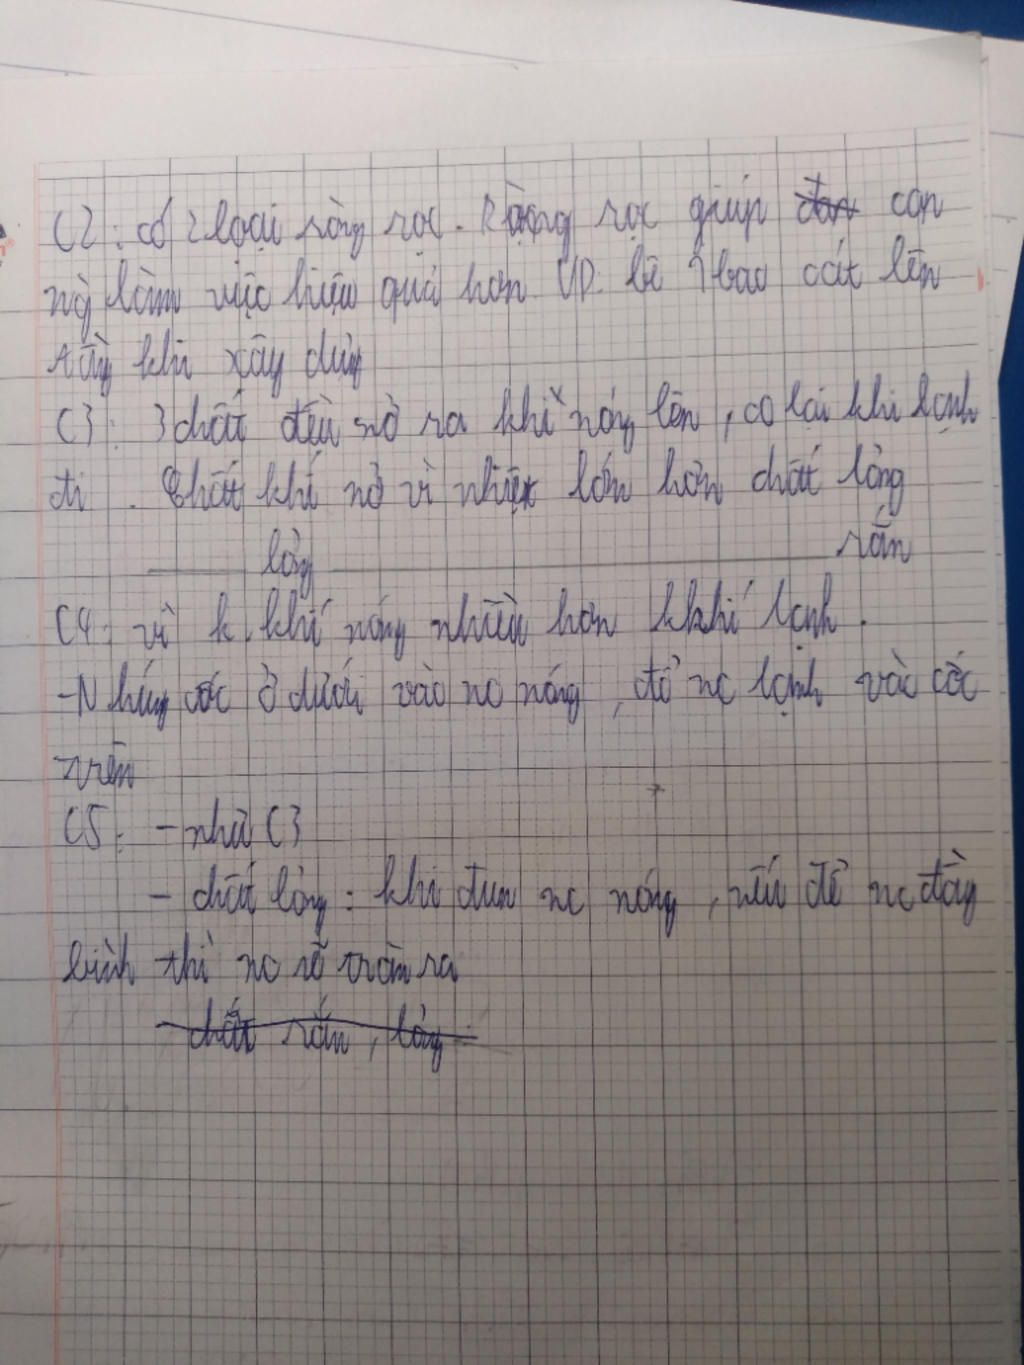 C2: có 2 loại ròng rọc. Ròng rọc giúp đan con
ng làm việc hiệu quả hơn VD: bê 1 bao cát lên
tầng khi xây dựng
C3: 3 chất đều nở ra khi nóng lên, co lại khi lạnh
đi. Chất khí nở vì nhiệt lớn hơn chất lỏng
——— lỏng ——————————— rắn
C4: vì k. khí nóng nhiều hơn kkhí lạnh.
- Nhúng cốc ở dưới vào nc nóng, đổ nc lạnh vào cốc
trên
C5: - như C3
- chất lỏng: khi đun nc nóng, nếu để nc đầy
bình thì nc sẽ tràn ra
chất rắn, lỏng: